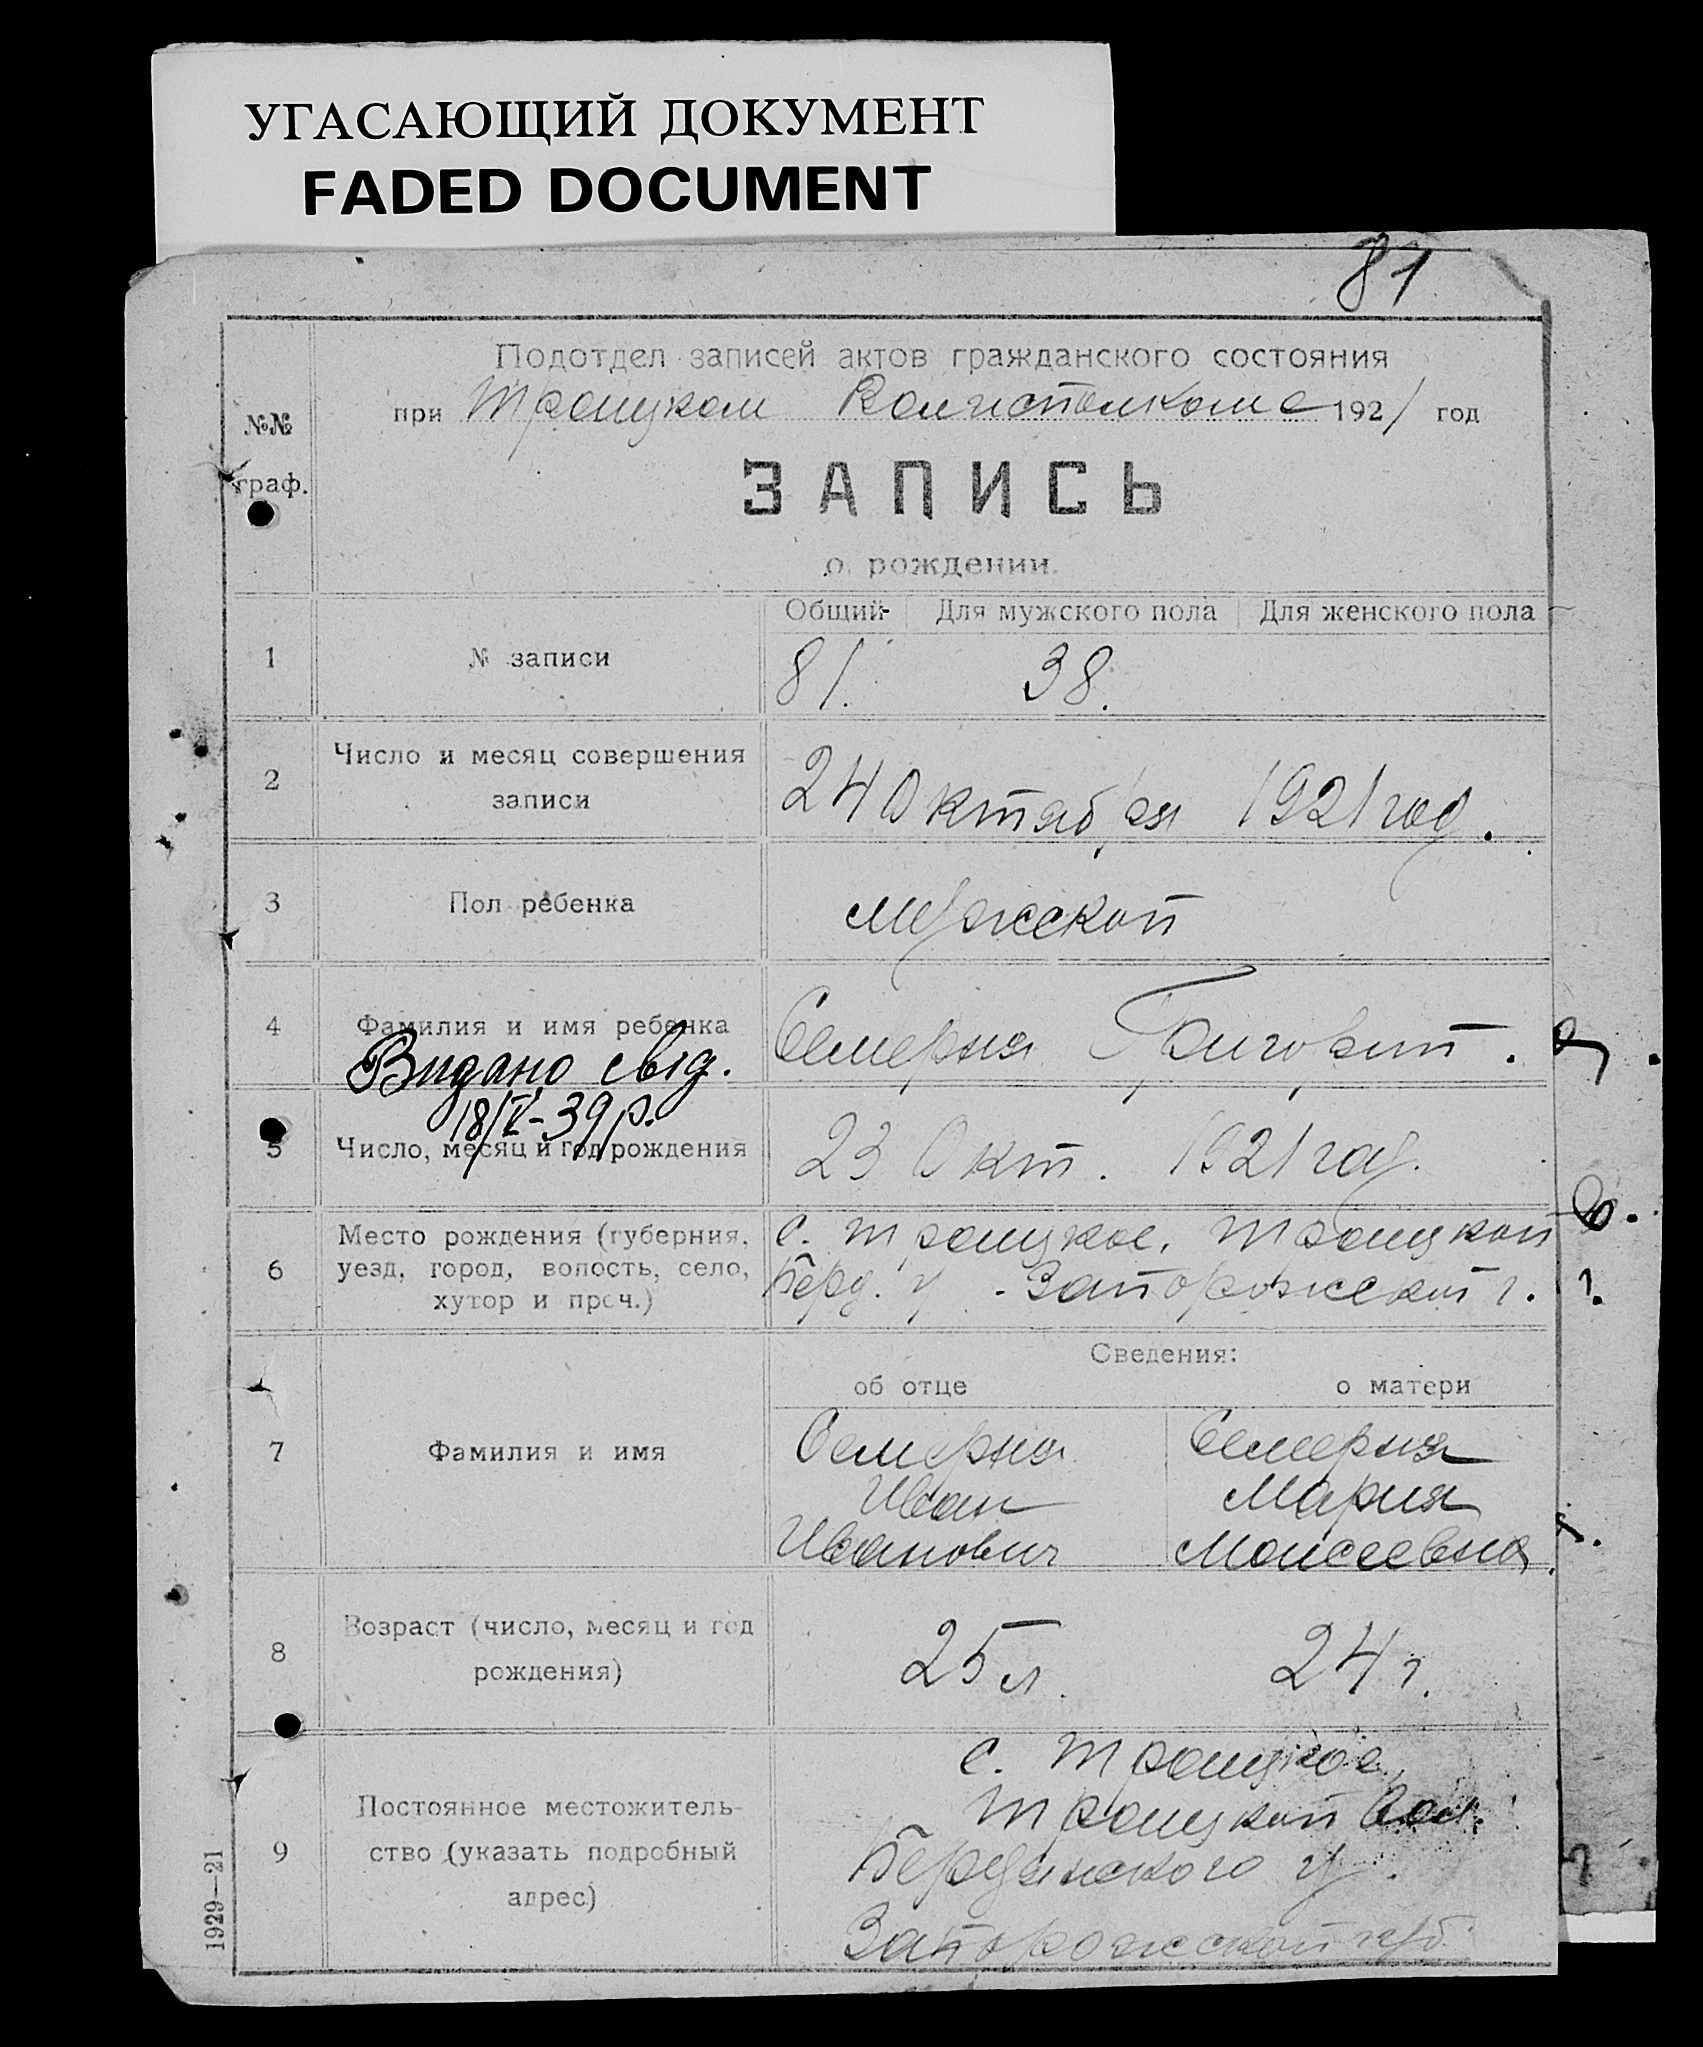 УГАСАЮЩИЙ ДОКУМЕНТ
FADED DOCUMENT
81
Подотдел записей актов гражданского состояния
при Троицком Волисполкоме 1921 год
№№ граф.
ЗАПИСЬ
о рождении.
Общий Для мужского пола Для женского пола
1 № записи 81. 38.
2 Число и месяц совершения
записи
24 Октября 1921 год.
3 Пол ребенка мужской
4 Фамилия и имя ребенка Семерня Григорий.
Видано свід.
18/V-39 р.
5 Число, месяц и год рождения 23 Окт. 1921 год.
6 Место рождения (губерния,
уезд, город, волость, село,
хутор и проч.)
с. Троицкое, Троицкой
Берд. у. Запорожской г.
Сведения:
об отце о матери
7 Фамилия и имя
Семерня Семерня
Иван Мария
Иванович Моисеевна.
8 Возраст (число, месяц и год
рождения)
25 л. 24 г.
9 Постоянное местожитель-
ство (указать подробный
адрес)
с. Троицкое,
Троицкой Вол.
Бердянского у.
Запорожской губ.
1929—21